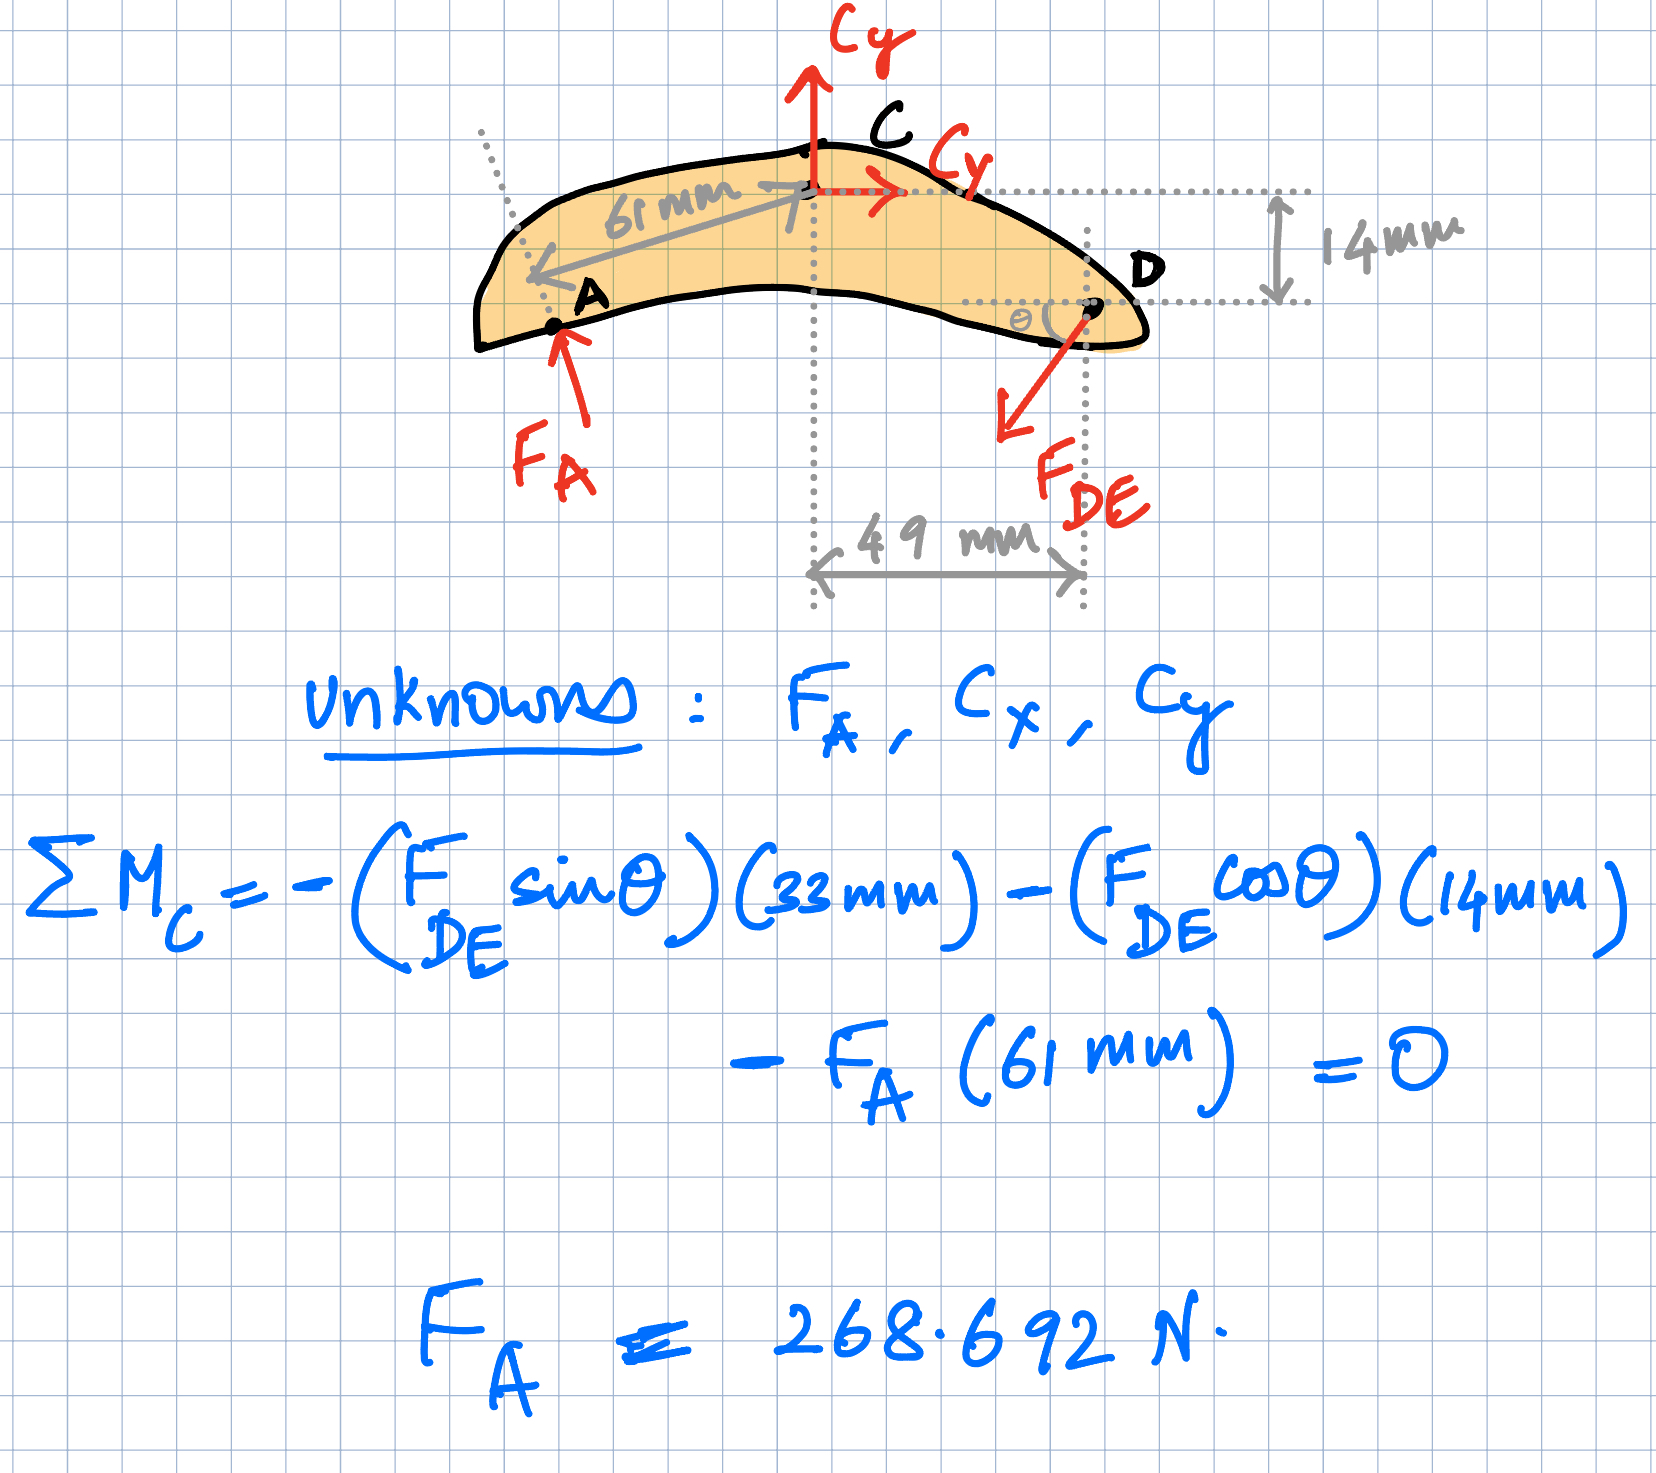 Cy
C
Cy
61 mm
14 mm
D
A
θ
F_A
F_DE
49 mm
Unknowns : F_A , C_x , C_y
ΣM_C = -(F_DE sinθ)(33 mm) - (F_DE cosθ)(14mm)
- F_A (61 mm) = 0
F_A = 268.692 N.